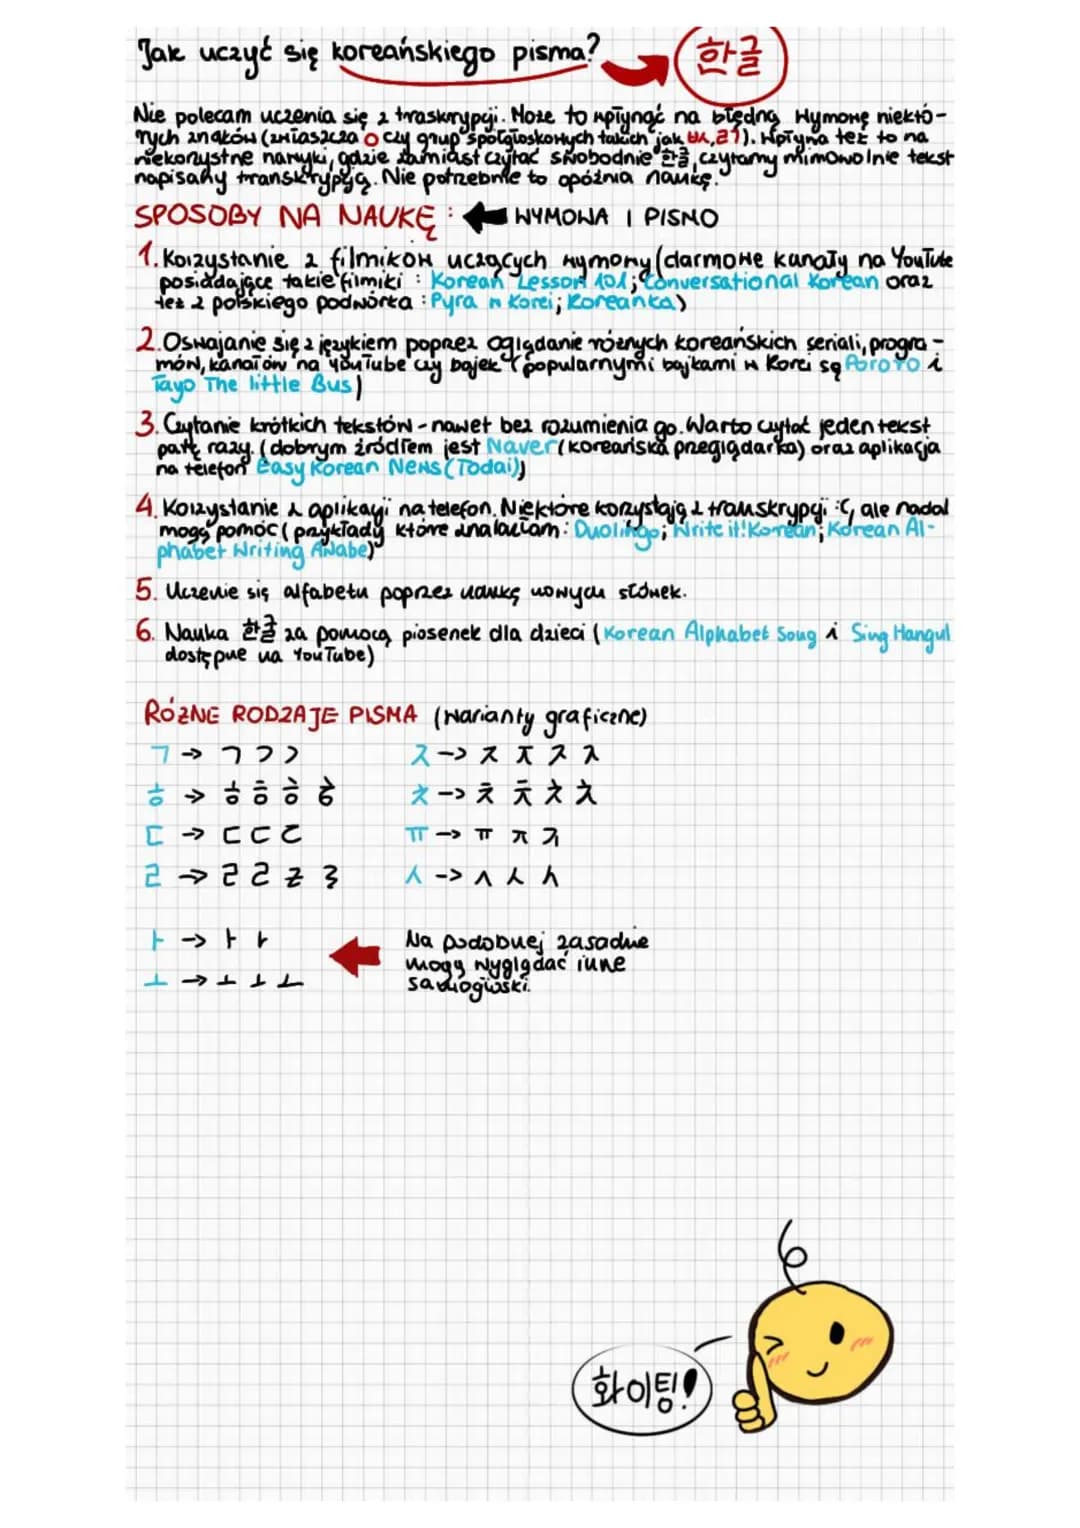 Jak uczyć się koreańskiego pisma? 한글
Nie polecam uczenia się z traskrypcji. Może to wpłynąć na błędną wymowę niektó-
rych znaków (zwłaszcza ㅇ czy grup spółgłoskowych takich jak ㅄ, ㄺ). Wpływa też to na
niekorzystne nawyki, gdzie zamiast czytać swobodnie 한글, czytamy mimowolnie tekst
napisany transkrypcją. Nie potrzebnie to opóźnia naukę.
SPOSOBY NA NAUKĘ : WYMOWA I PISMO
1. Korzystanie z filmików uczących wymowy (darmowe kanały na YouTube
posiadające takie filmiki : Korean Lesson 101; Conversational Korean oraz
też z polskiego podwórka : Pyra w Korei; Koreanka)
2. Oswajanie się z językiem poprzez oglądanie różnych koreańskich seriali, progra-
mów, kanałów na YouTube czy bajek (popularnymi bajkami w Korei są Pororo i
Tayo The little Bus)
3. Czytanie krótkich tekstów - nawet bez rozumienia go. Warto czytać jeden tekst
parę razy. (dobrym źródłem jest Naver (koreańska przeglądarka) oraz aplikacja
na telefon Easy Korean News (Todai))
4. Korzystanie z aplikacji na telefon. Niektóre korzystają z transkrypcji :C, ale nadal
mogą pomóc (przykłady które znalazłam: Duolingo; Write it! Korean; Korean Al-
phabet Writing Awabe)
5. Uczenie się alfabetu poprzez naukę nowych słówek.
6. Nauka 한글 za pomocą piosenek dla dzieci (Korean Alphabet Song i Sing Hangul
dostępne na YouTube)
RÓŻNE RODZAJE PISMA (warianty graficzne)
ㄱ → ㄱ ㄱ ㄱ
ㅎ → ㅎ ㅎ ㅎ ㅎ
ㄷ → ㄷ ㄷ ㄷ
ㄹ → ㄹ ㄹ ㄹ ㄹ
ㅈ → ㅈ ㅈ ㅈ ㅈ
ㅊ → ㅊ ㅊ ㅊ ㅊ
ㅠ → ㅠ ㅠ ㅠ
ㅅ → ㅅ ㅅ ㅅ
ㅏ → ㅏ ㅏ
ㅗ → ㅗ ㅗ ㅗ
Na podobnej zasadnie
mogą wyglądać inne
samogłoski.
화이팅!